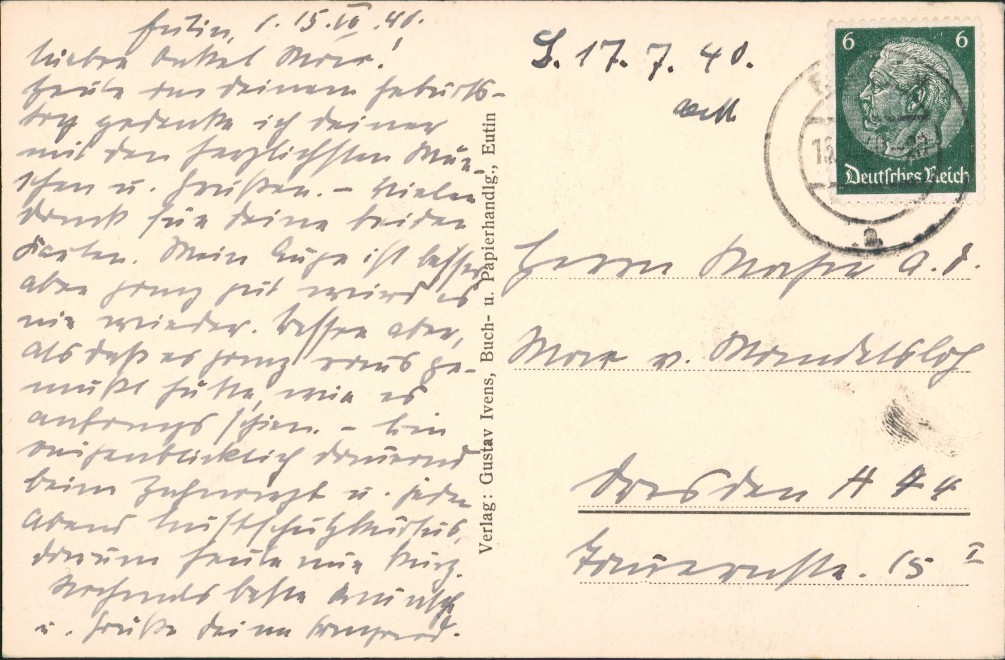 Eutin, d. 15. VII. 40.
Lieber Onkel Max!
Heute an deinem Geburts-
tag gedenke ich deiner
mit den herzlichsten Wün-
schen u. Grüßen. – Vielen
Dank für deine beiden
Karten. Mein Auge ist besser
aber ganz gut wird es
nie wieder. Besser aber,
als daß es ganz raus ge-
mußt hätte, wie es
anfangs schien. – Bin
augenblicklich dauernd
beim Zahnarzt u. jeden
Abend Luftschutzkursus,
darum heute nur kurz.
Nochmals beste Wünsche
u. Grüße deine
Verlag: Gustav Ivens, Buch- u. Papierhandlg., Eutin
17. 7. 40.
6 6
Deutsches Reich
a
Herrn Major a. D.
Max v. Mandelsloh
Dresden A
15 I